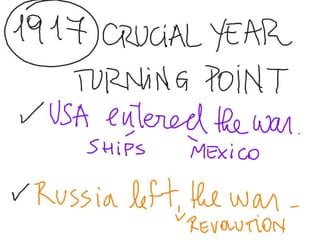 1917 CRUCIAL YEAR
TURNING POINT
✓ USA entered the war.
SHIPS MEXICO
✓ Russia left the war -
REVOLUTION